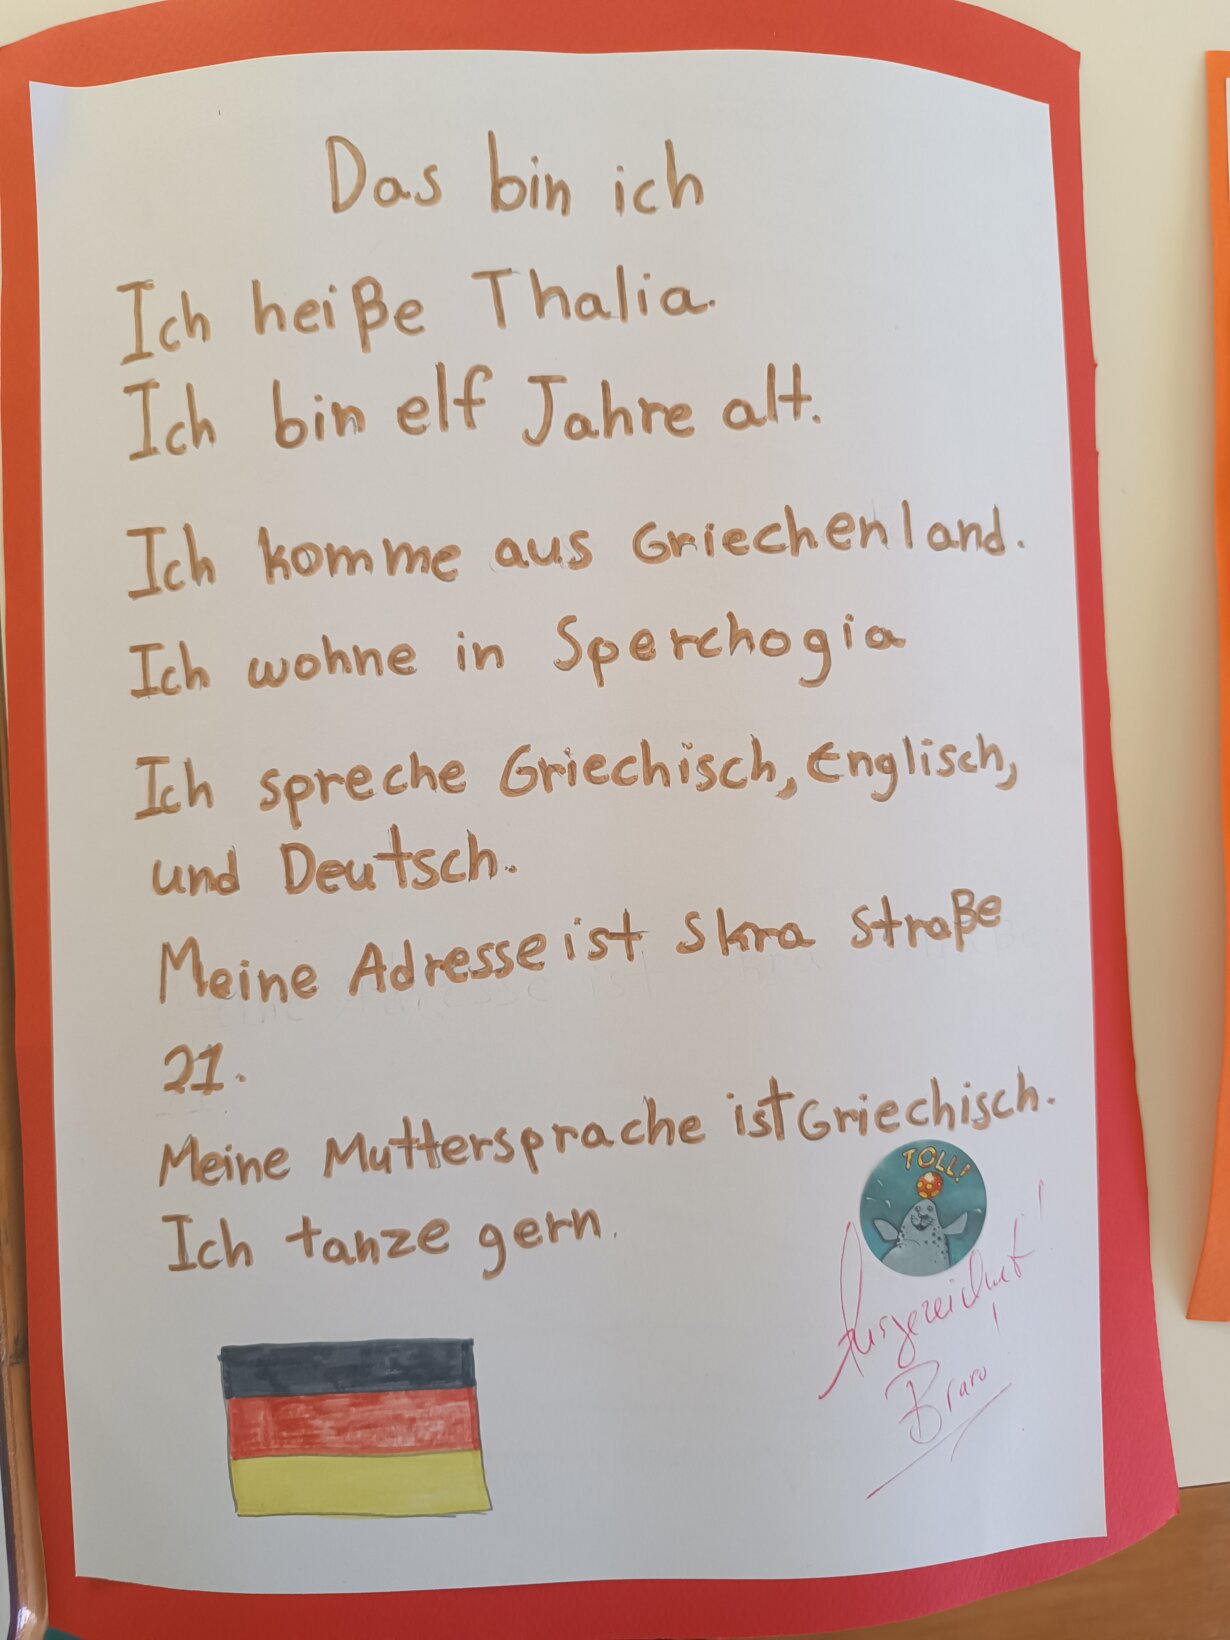 Das bin ich
Ich heiße Thalia.
Ich bin elf Jahre alt.
Ich komme aus Griechenland.
Ich wohne in Sperchogia
Ich spreche Griechisch, Englisch,
und Deutsch.
Meine Adresse ist Skra straße
21.
Meine Muttersprache ist Griechisch.
TOLL!
Ich tanze gern.
Ausgezeichnet!
Bravo!